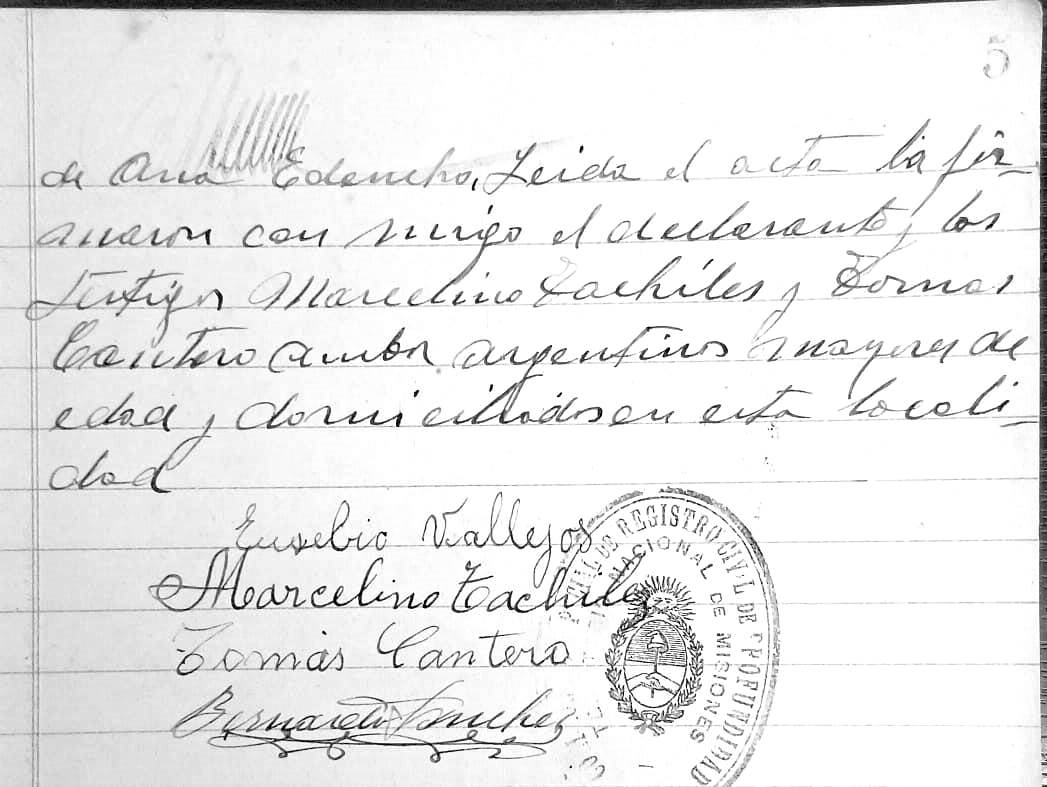 5
de Ana Leida el acta la fir-
maron con migo el declarante y los
testigos Marcelino Tachiles y Tomas
Cantero ambos argentinos mayores de
edad y domiciliados en esta locali-
dad
Eusebio Vallejos
Marcelino Tachiles
Tomás Cantero
Bernardo Sanchez
DE REGISTRO CIVIL DE PROFUNDIDAD
NACIONAL DE MISIONES